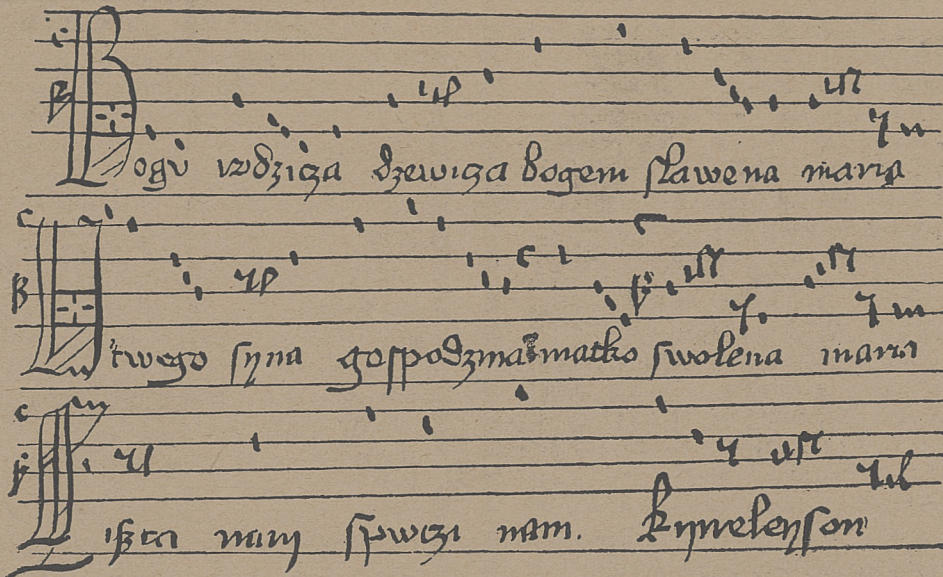 Bogu rodzicza dzewicza bogem slawena maria
U twego syna gospodzina matko swolena maria
Siszta nam spwczi nam. Kyrieleyson